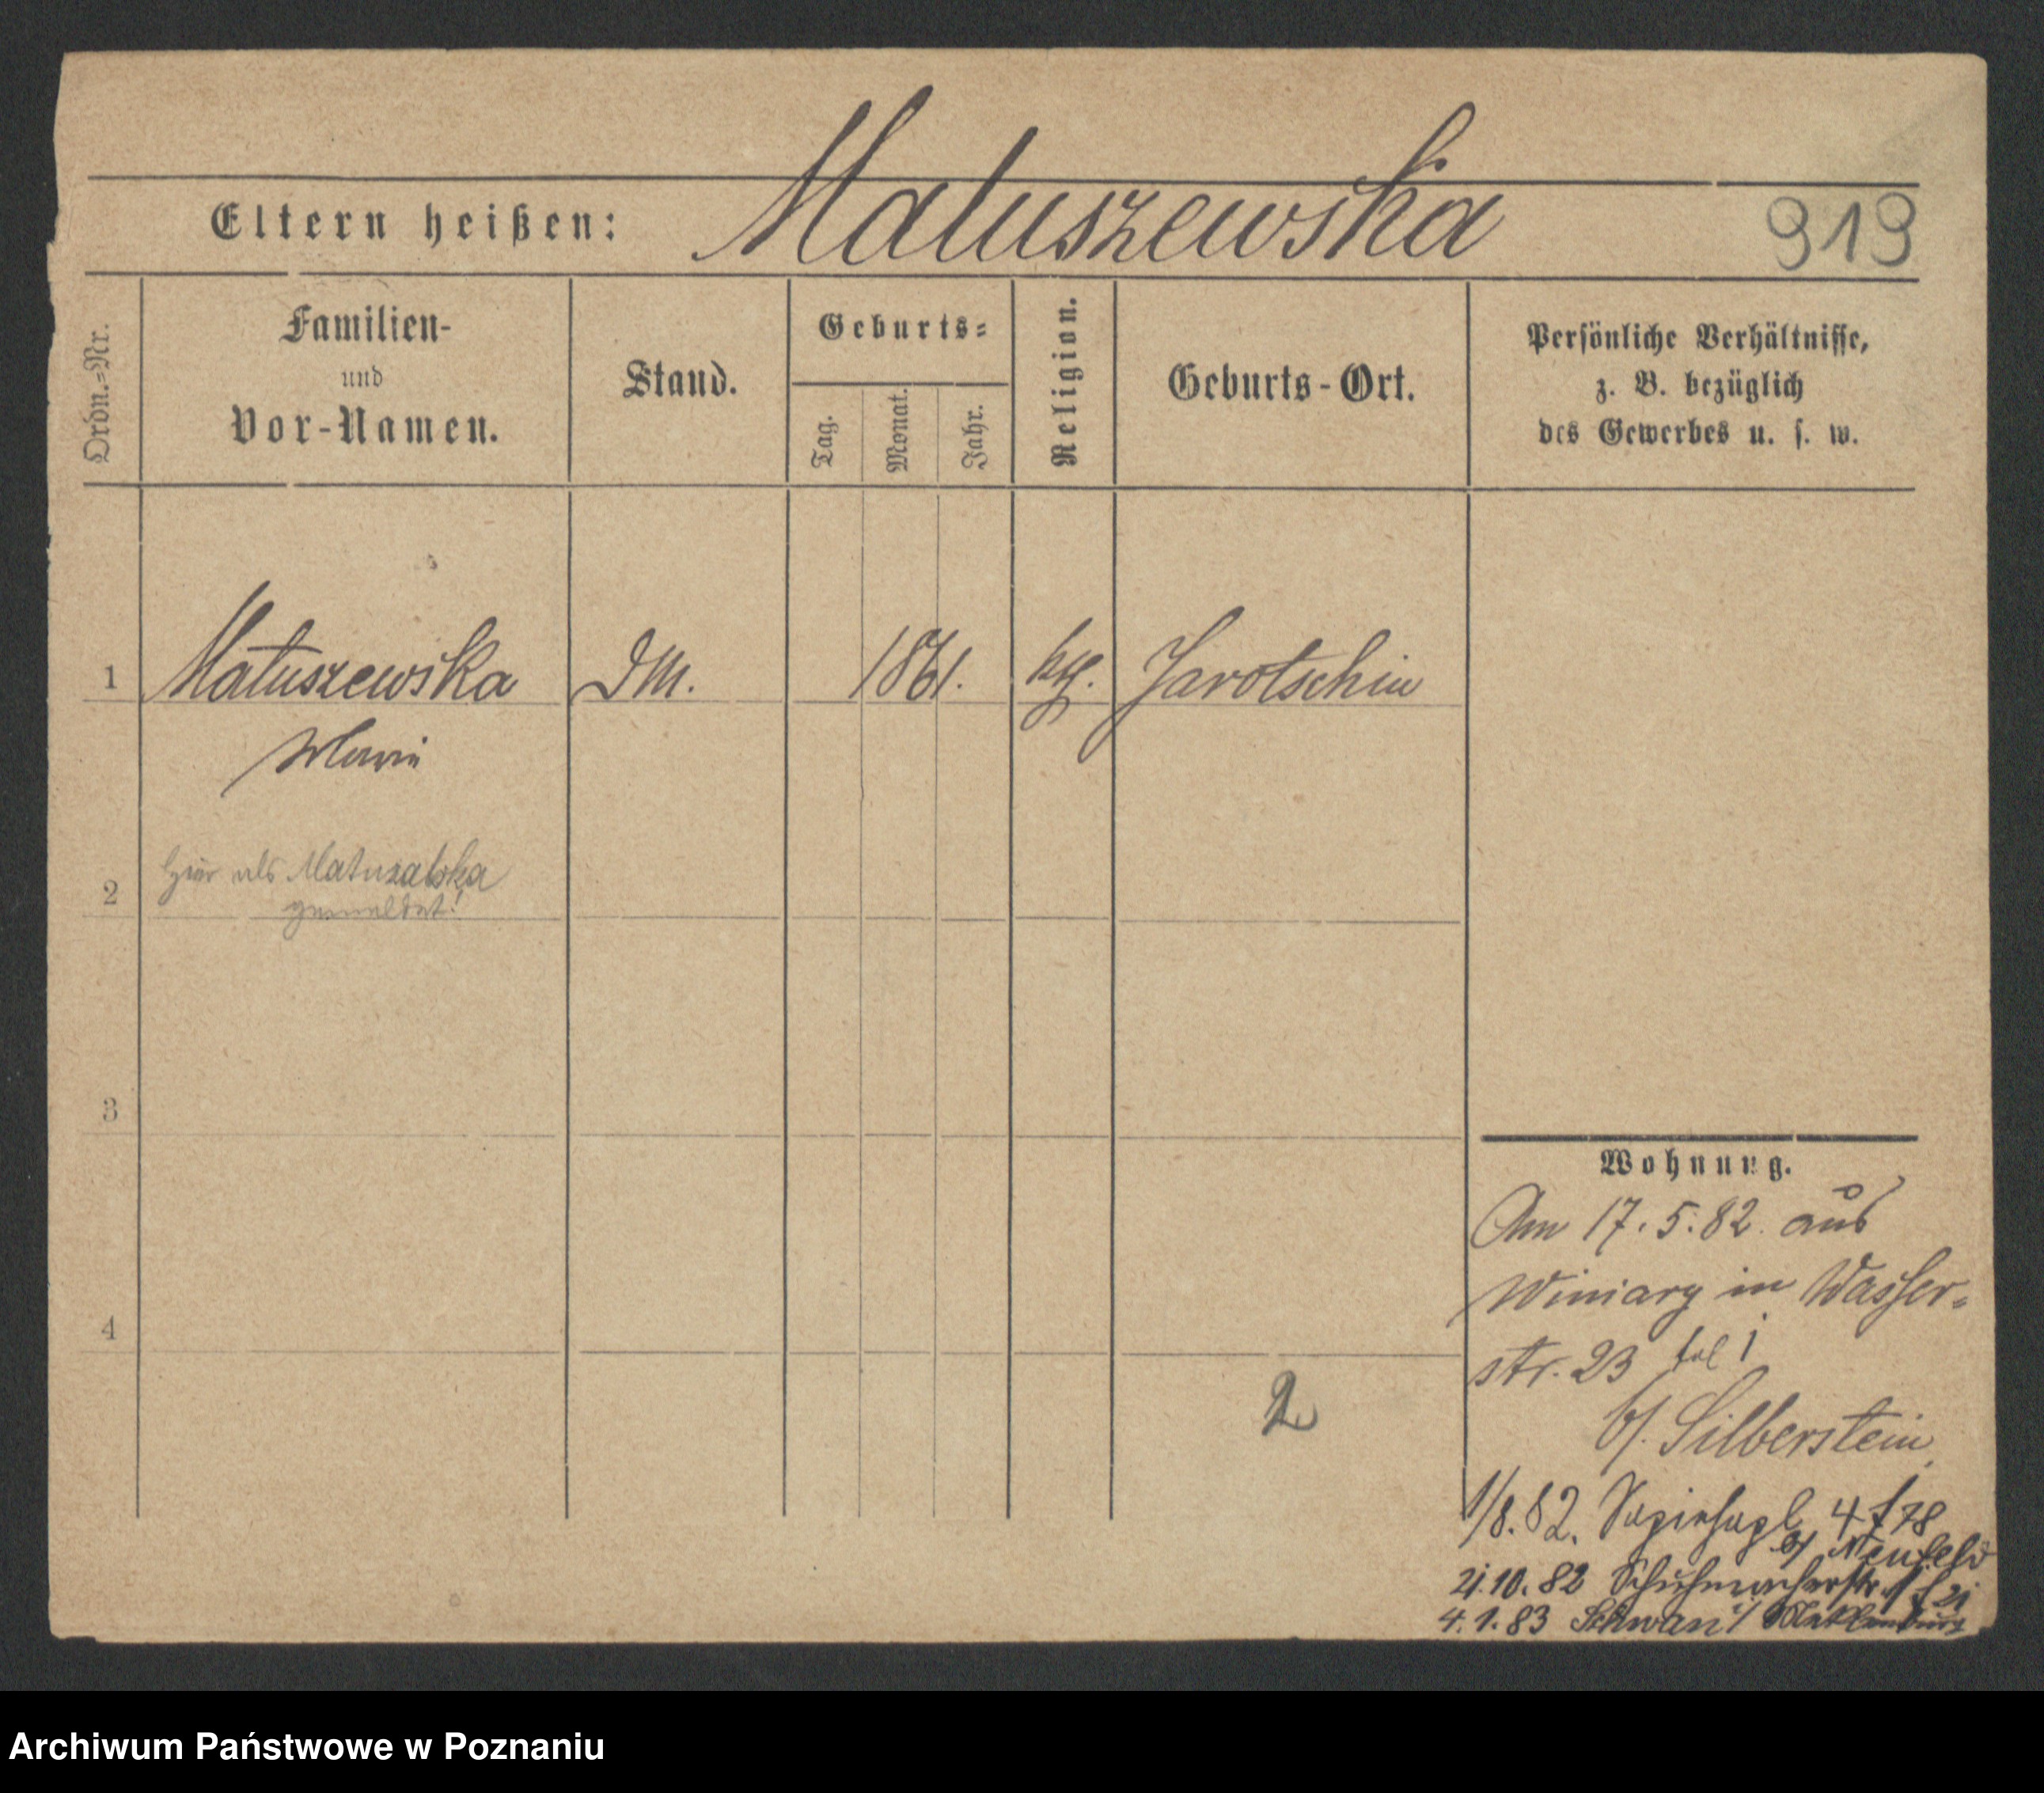 Matuszewska
Eltern heißen:
919
Ordn.=Nr.
Familien-
und
Vor-Namen.
Stand.
Geburts=
Tag.
Monat.
Jahr.
Religion.
Geburts-Ort.
Persönliche Verhältnisse,
z. B. bezüglich
des Gewerbes u. s. w.
1
Matuszewska
DM.
1861.
kth.
Jarotschin
Marie
2
hier als Matuzalska
gemeldet!
3
4
2
Wohnung.
Am 17.5.82. aus
Winiary in Wasser=
str. 23
b/. Silberstein
1/8.82. Sapiehapl. 4 f 78
b/ Neufeld
21.10.82 Schuhmacherstr. 11 f 21
4.1.83 Schwan i/
Archiwum Państwowe w Poznaniu